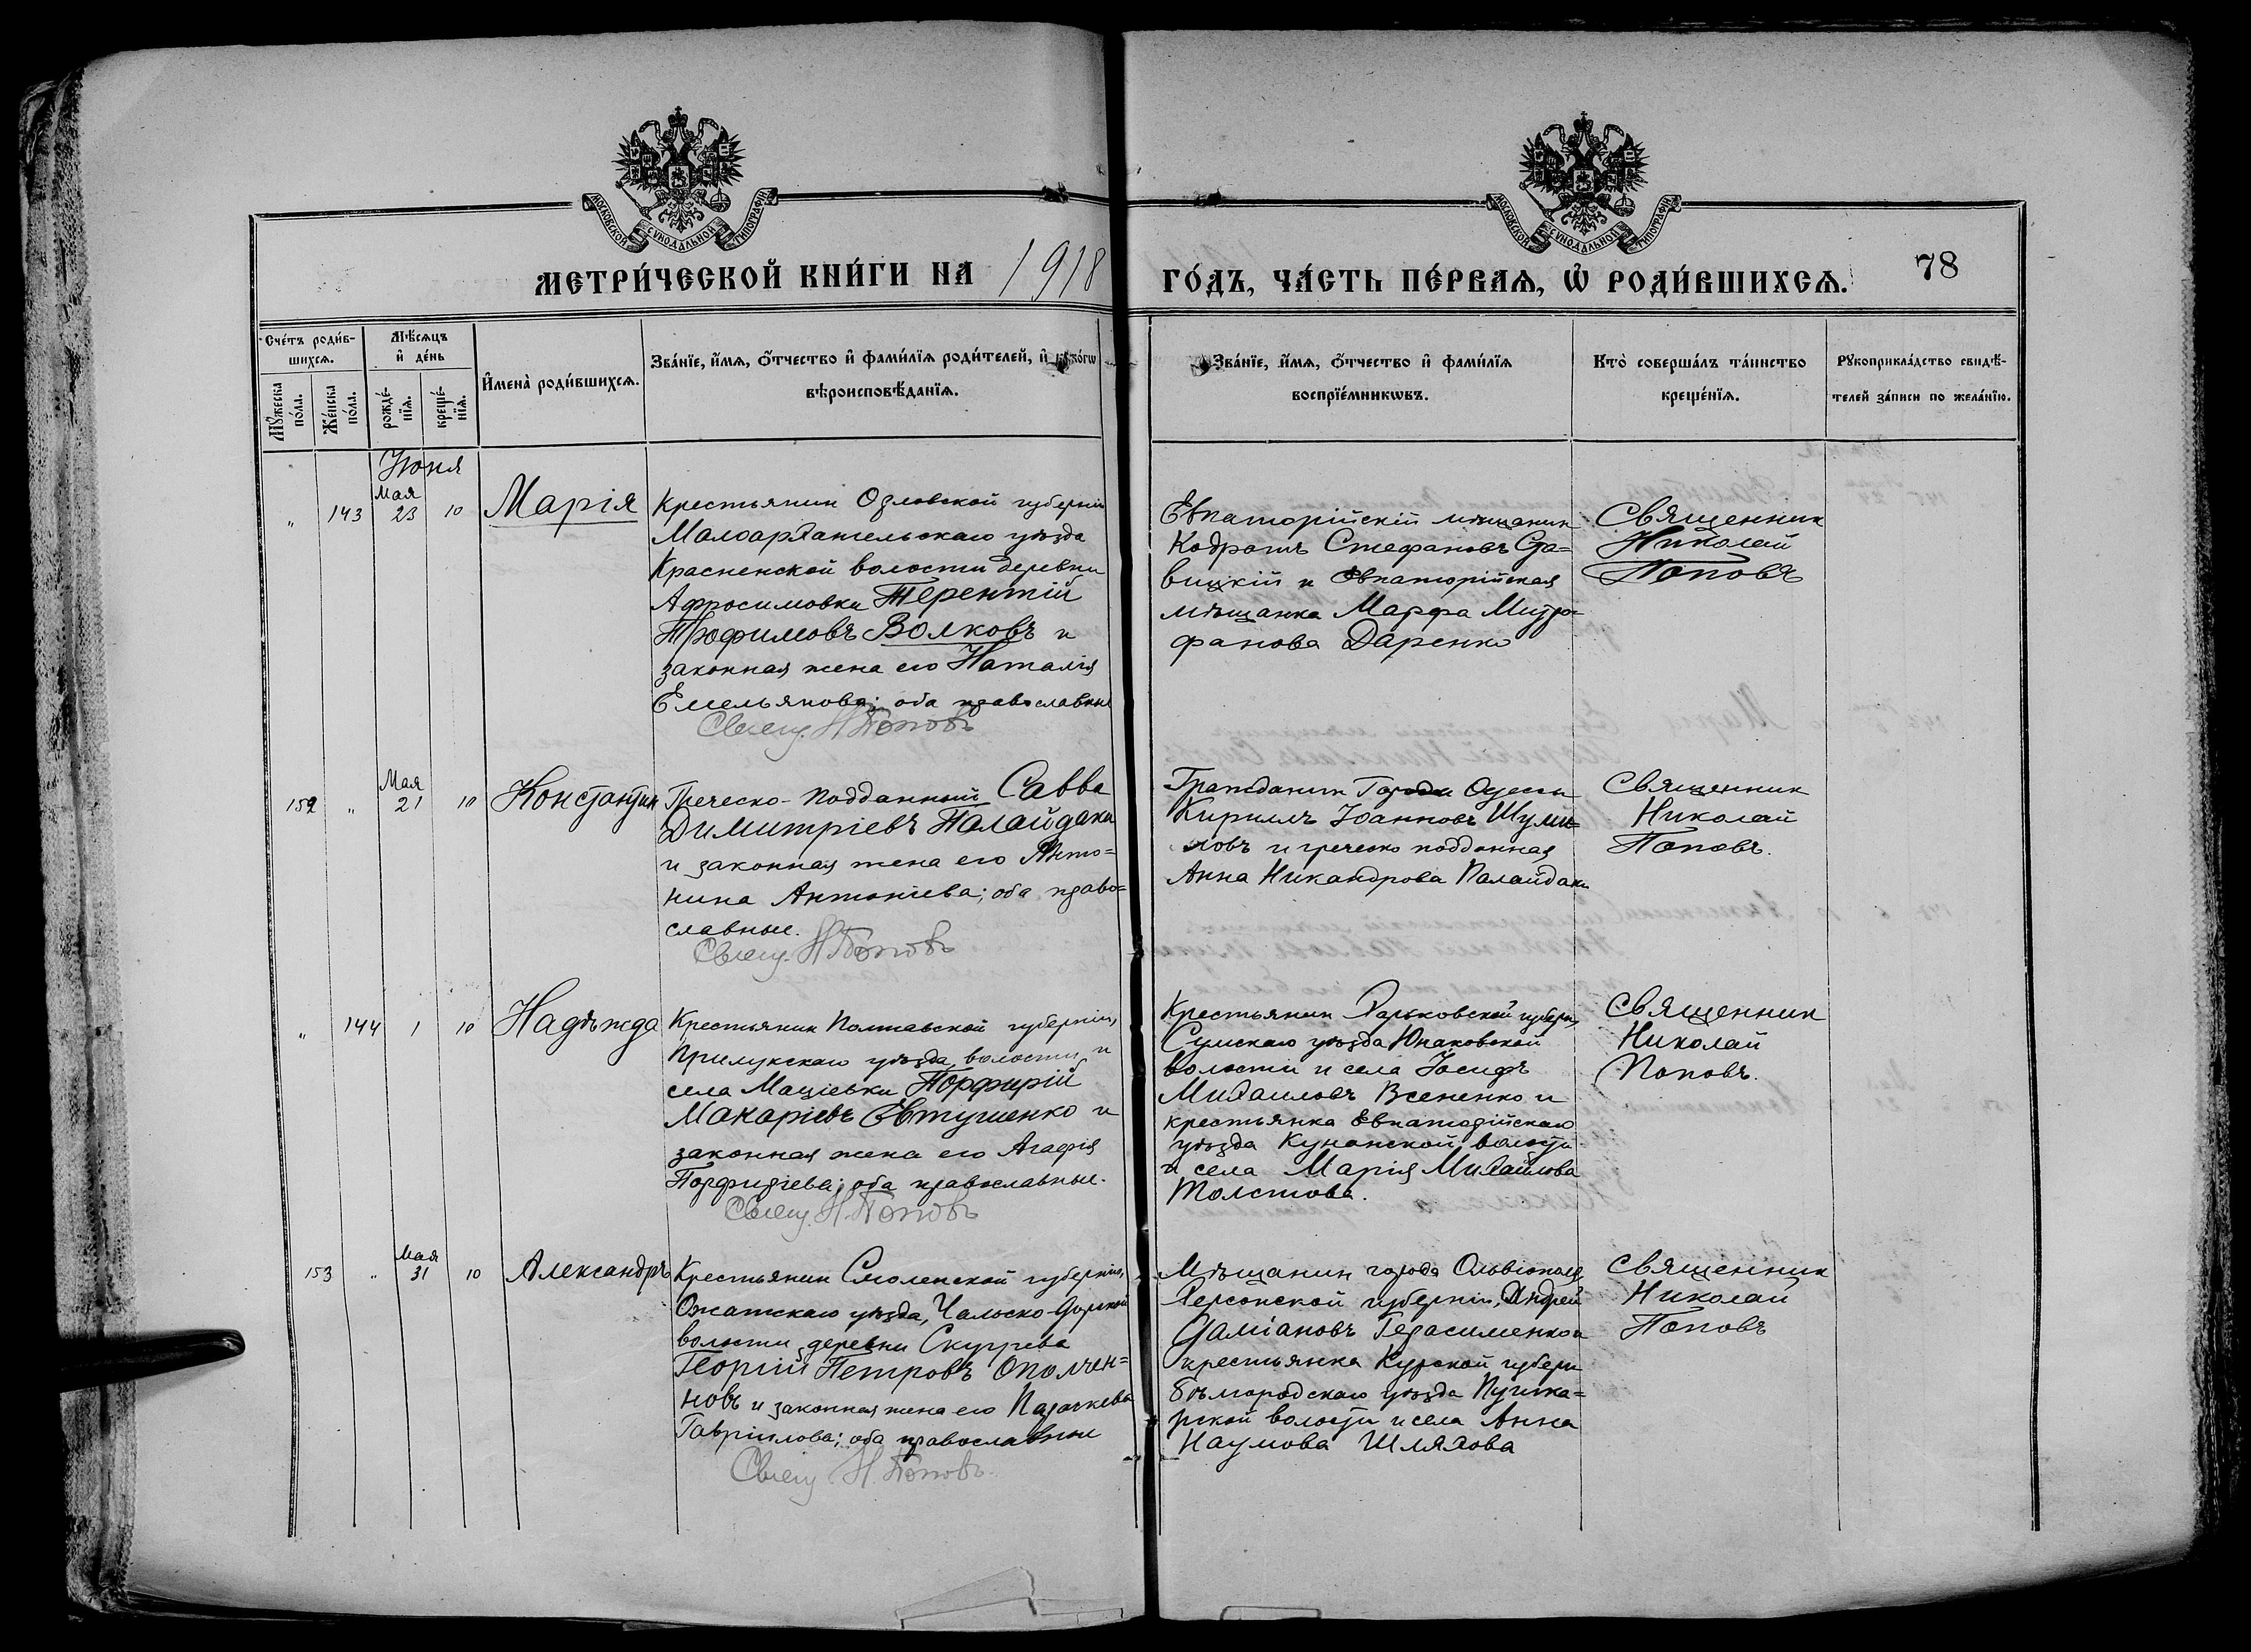 МОСКОВСКОЙ СѴНОДАЛЬНОЙ ТИПОГРАФІИ
МОСКОВСКОЙ СѴНОДАЛЬНОЙ ТИПОГРАФІИ
МЕТРИ́ЧЕСКОЙ КНИ́ГИ НА 1918
ГО́ДЪ, ЧА́СТЬ ПЕ́РВАѦ, Ѡ҆ РОДИ́ВШИХСѦ. 78
Сче́тъ роди́в-
шихсѧ.
Мꙋ́жеска по́ла.
Же́нска по́ла.
Мѣ́сѧцъ
и҆ де́нь
рожде́-нїѧ.
креще́-нїѧ.
И҆мена̀ роди́вшихсѧ.
Зва́нїе, и҆́мѧ, ѻ҆́тчество и҆ фами́лїѧ роди́телей, и҆ како́гѡ
вѣроисповѣ́данїѧ.
Зва́нїе, и҆́мѧ, ѻ҆́тчество и҆ фами́лїѧ
воспрїе́мникѡвъ.
Кто̀ соверша́лъ та́инство
креще́нїѧ.
Рꙋкоприкла́дство свидѣ́-
телей за́писи по жела́нїю.
Іюня
" 143 Мая 23 10 Марія
Крестьянин Орловской губерніи
Малоархангельскаго уѣзда
Красненской волости деревни
Афросимовки Терентій
Трофимовъ Волковъ и
законная жена его Наталія
Емельянова; оба православные
Свящ. Н. Поповъ
Евпаторійскій мѣщанин
Кодратъ Стефановъ Са-
вицкій и Евпаторійская
мѣщанка Марфа Митро-
фанова Даренко
Священник
Николай
Поповъ
152 " Мая 21 10 Константин
Греческо-подданный Савва
Димитріевъ Палайдаки
и законная жена его Анто-
нина Антоніева; оба право-
славные.
Свящ. Н. Поповъ
Гражданин Города Одессы
Кириллъ Іоанновъ Шуми-
ловъ и греческо подданная
Анна Никандрова Палайдаки
Священник
Николай
Поповъ.
" 144 1 10 Надѣжда
Крестьянин Полтавской губерніи,
Прилукскаго уѣзда, волости и
села Мацѣевки Порфирій
Макаріевъ Евтушенко и
законная жена его Агафія
Порфиріева; оба православные.
Свящ. Н. Поповъ
Крестьянин Харьковской губерн,
Сумскаго уѣзда Юнаковской
волости и села Іосифъ
Михаиловъ Всененко и
крестьянка Евпаторійскаго
уѣзда Кунанской волости
и села Марія Михайлова
Толстова.
Священник
Николай
Поповъ.
153 " Мая 31 10 Александръ
Крестьянин Смоленской губерніи,
уѣзда,
волости деревни
Георгій Петровъ Ополчен-
новъ и законная жена его Параскева
Гавріилова; оба православные
Свящ Н. Поповъ
Мѣщанин города Ольвіополя
Херсонской губерніи, Андрей
Даміановъ Герасименко и
крестьянка Курской губерн
Бѣлгородскаго уѣзда Пушка-
рской волости и села Анна
Наумова Шляхова
Священник
Николай
Поповъ